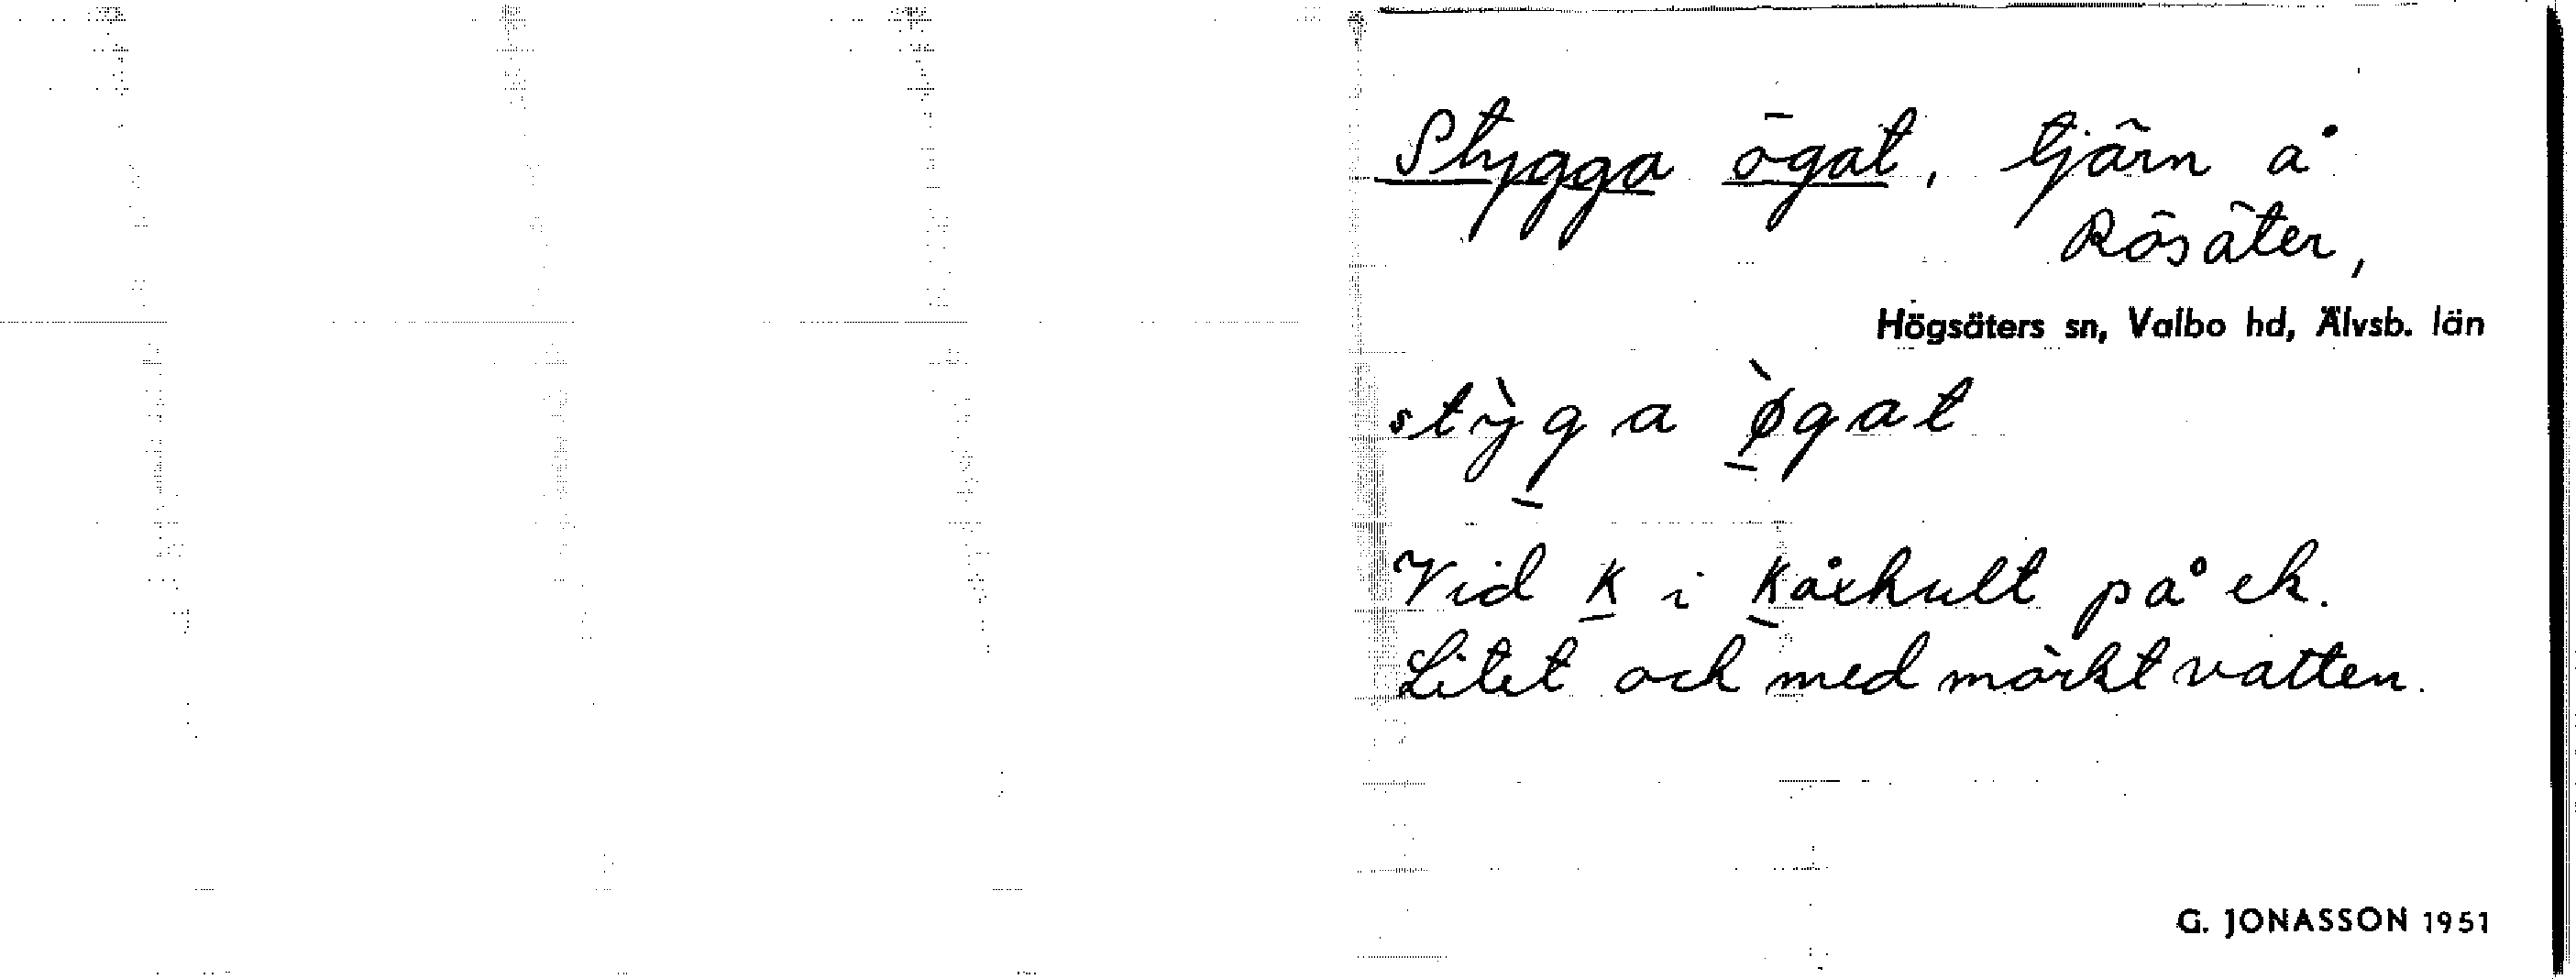 Stygga ögat, tjärn å
Rösäter,
Högsäters sn, Valbo hd, Älvsb. län
stỳ̠ga ø̠̀gat
Vid K i Kåxhult på ek.
Litet och med mörkt vatten.
G. JONASSON 1951